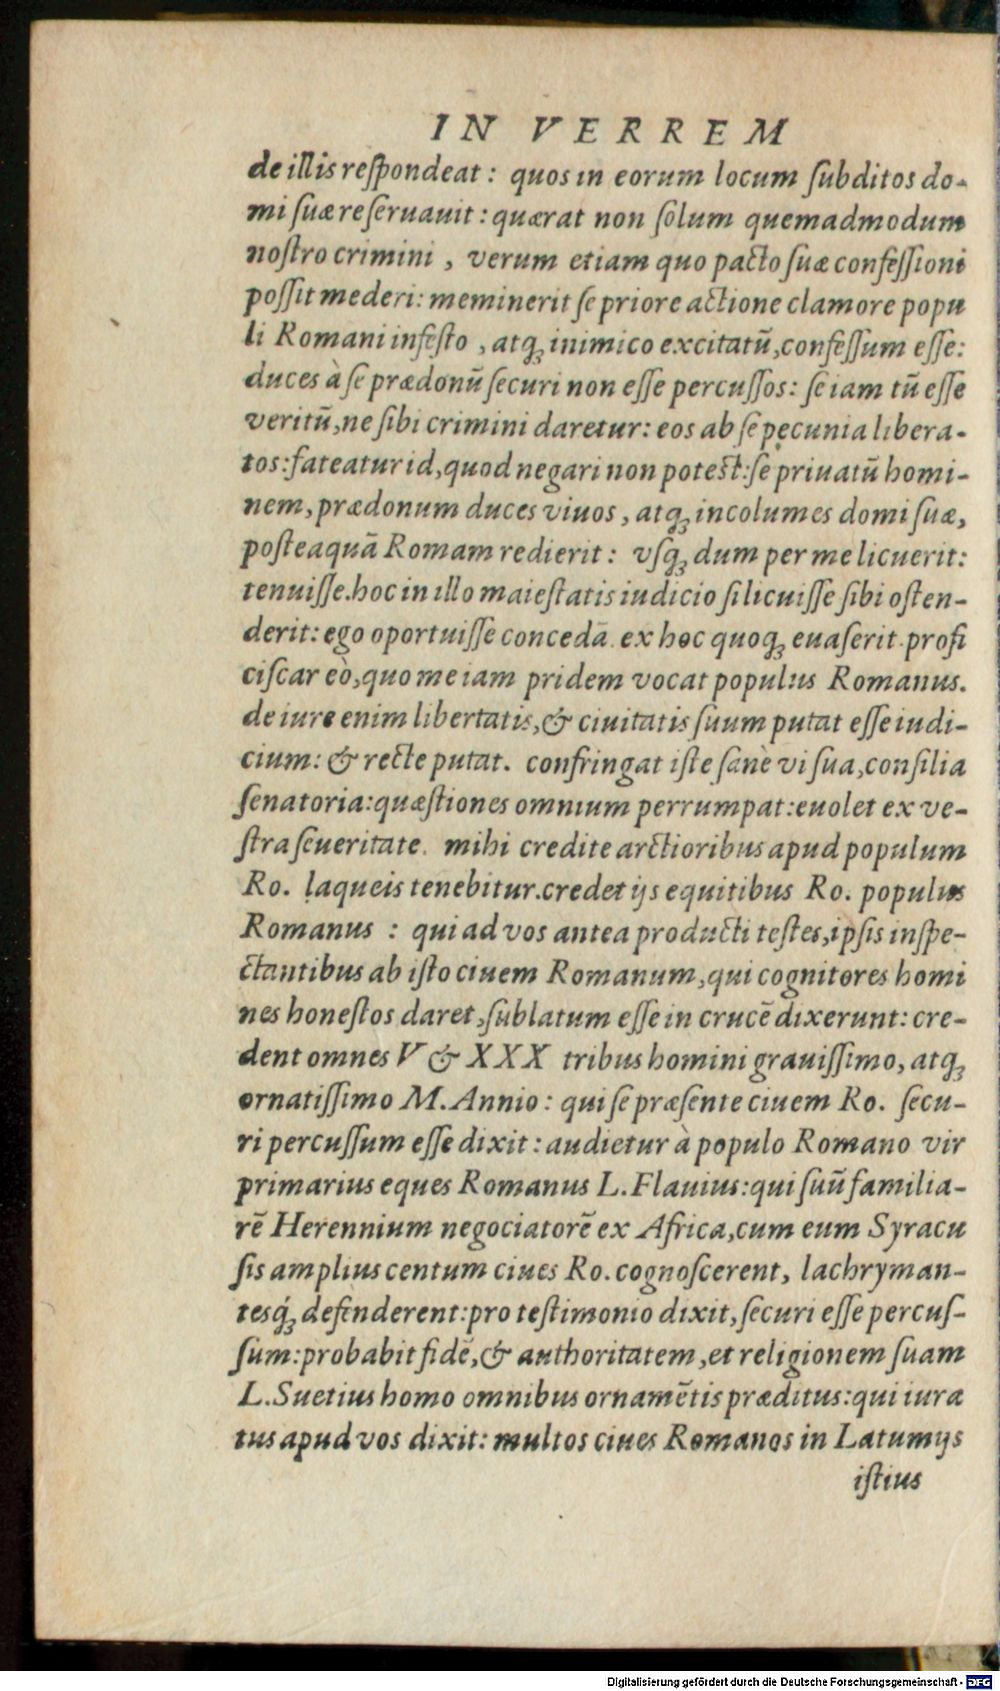 IN VERREM
de illis reſpondeat: quos in eorum locum ſubditos do-
mi ſuæ reſeruauit: quærat non ſolum quemadmodum
noſtro crimini, verum etiam quo pacto ſuæ confeſſioni
poſſit mederi: meminerit ſe priore actione clamore popu
li Romani infeſto, atq; inimico excitatū, confeſſum eſſe:
duces à ſe prædonū ſecuri non eſſe percuſſos: ſe iam tū eſſe
veritū, ne ſibi crimini daretur: eos ab ſe pecunia libera-
tos: fateatur id, quod negari non poteſt: ſe priuatū homi-
nem, prædonum duces viuos, atq; incolumes domi ſuæ,
poſteaquā Romam redierit: vſq; dum per me licuerit:
tenuiſſe. hoc in illo maieſtatis iudicio ſi licuiſſe ſibi oſten-
derit: ego oportuiſſe concedā. ex hoc quoq; euaſerit. profi
ciſcar eò, quo me iam pridem vocat populus Romanus.
de iure enim libertatis, & ciuitatis ſuum putat eſſe iudi-
cium: & recte putat. confringat iſte ſanè vi ſua, conſilia
ſenatoria: quæſtiones omnium perrumpat: euolet ex ve-
ſtra ſeueritate. mihi credite arctioribus apud populum
Ro. laqueis tenebitur. credet ijs equitibus Ro. populus
Romanus: qui ad vos antea producti teſtes, ipſis inſpe-
ctantibus ab iſto ciuem Romanum, qui cognitores homi
nes honeſtos daret, ſublatum eſſe in crucē dixerunt: cre-
dent omnes V & XXX tribus homini grauiſſimo, atq;
ornatiſſimo M. Annio: qui ſe præſente ciuem Ro. ſecu-
ri percuſſum eſſe dixit: audietur à populo Romano vir
primarius eques Romanus L. Flauius: qui ſuū familia-
rē Herennium negociatorē ex Africa, cum eum Syracu
ſis amplius centum ciues Ro. cognoſcerent, lachryman-
tesq́; defenderent: pro teſtimonio dixit, ſecuri eſſe percuſ-
ſum: probabit fidē, & authoritatem, et religionem ſuam
L. Suetius homo omnibus ornamētis præditus: qui iura
tus apud vos dixit: multos ciues Romanos in Latumijs
iſtius
Digitalisierung gefördert durch die Deutsche Forschungsgemeinschaft - DFG